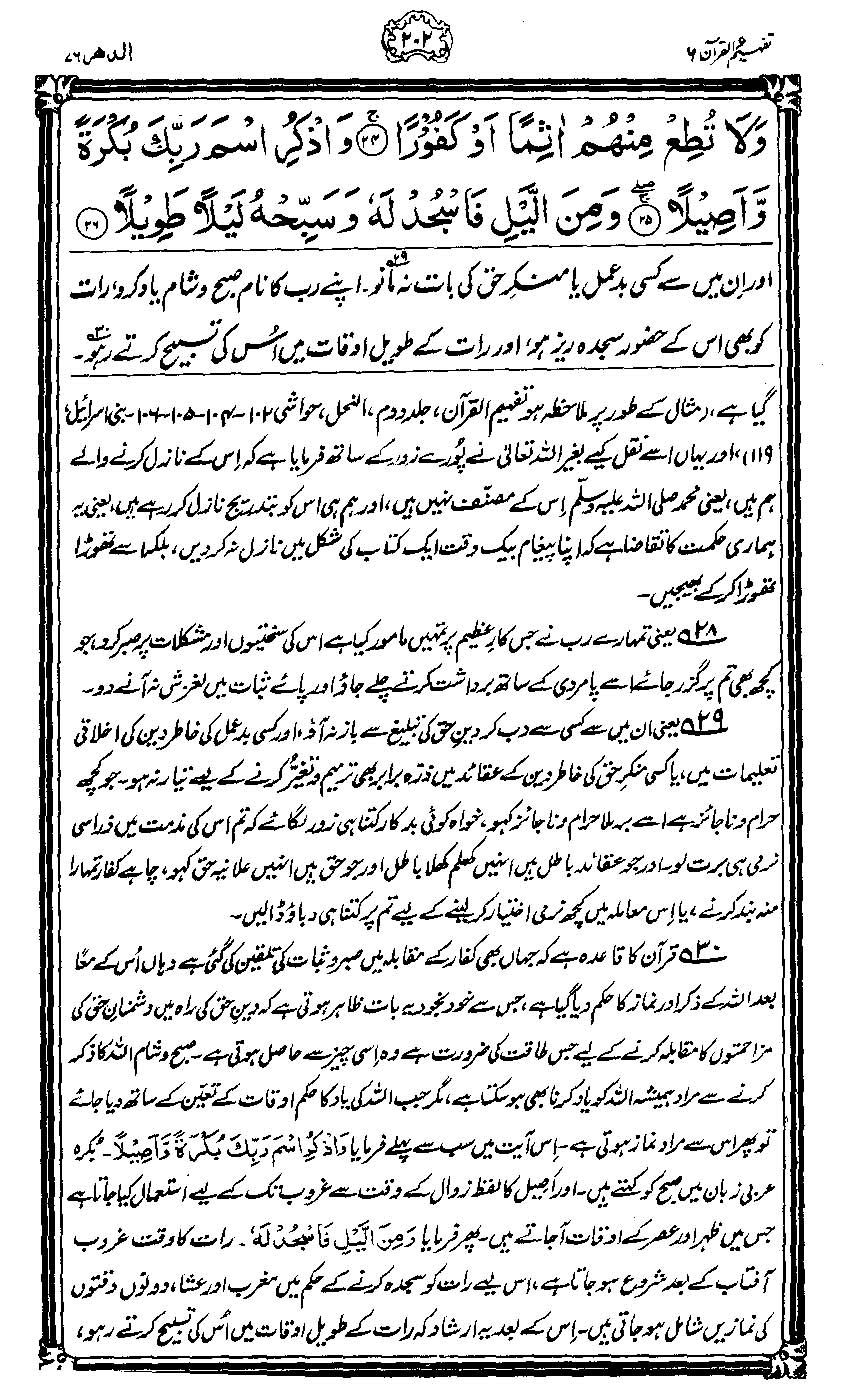 تفہیم القرآن ۶
۲۰۲
الدھر ۷۶
وَلَا تُطِعْ مِنْهُمْ اٰثِمًا اَوْ كَفُوْرًا ﴿۲۴﴾ وَاذْكُرِ اسْمَ رَبِّكَ بُكْرَةً
وَّاَصِيْلًا ﴿۲۵﴾ وَمِنَ الَّيْلِ فَاسْجُدْ لَهٗ وَسَبِّحْهُ لَيْلًا طَوِيْلًا ﴿۲۶﴾
اور اِن میں سے کسی بد عمل یا منکرِ حق کی بات نہ مانو۔ ۲۹ اپنے رب کا نام صبح و شام یاد کرو، رات
کو بھی اس کے حضور سجدہ ریز ہو، اور رات کے طویل اوقات میں اُس کی تسبیح کرتے رہو ۳۰۔
گیا ہے، (مثال کے طور پر ملاحظہ ہو تفہیم القرآن، جلد دوم، النحل، حواشی ۱۰۲-۱۰۴-۱۰۵-۱۰۶- بنی اسرائیل،
۱۱۹)، اور یہاں اسے نقل کیے بغیر اللہ تعالیٰ نے پُورے زور کے ساتھ فرمایا ہے کہ اِس کے نازل کرنے والے
ہم ہیں، یعنی محمد صلی اللہ علیہ وسلّم اِس کے مصنّف نہیں ہیں، اور ہم ہی اس کو بتدریج نازل کر رہے ہیں، یعنی یہ
ہماری حکمت کا تقاضا ہے کہ اپنا پیغام بیک وقت ایک کتاب کی شکل میں نازل نہ کر دیں، بلکہ اسے تھوڑا
تھوڑا کر کے بھیجیں۔
۲۸ یعنی تمہارے رب نے جس کارِ عظیم پر تمہیں مامور کیا ہے اس کی سختیوں اور مشکلات پر صبر کرو، جو
کچھ بھی تم پر گزر جائے اسے پامردی کے ساتھ برداشت کرتے چلے جاؤ اور پائے ثبات میں لغزش نہ آنے دو۔
۲۹ یعنی ان میں سے کسی سے دب کر دینِ حق کی تبلیغ سے باز نہ آؤ، اور کسی بد عمل کی خاطر دین کی اخلاقی
تعلیمات میں، یا کسی منکرِ حق کی خاطر دین کے عقائد میں ذرّہ برابر بھی ترمیم و تغیُّر کرنے کے لیے تیار نہ ہو۔ جو کچھ
حرام و ناجائز ہے اسے برملا حرام و ناجائز کہو، خواہ کوئی بدکار کتنا ہی زور لگائے کہ تم اس کی مذمت میں ذرا سی
نرمی ہی برت لو۔ اور جو عقائد باطل ہیں انہیں کھلم کھلا باطل اور جو حق ہیں انہیں علانیہ حق کہو، چاہے کفار تمہارا
منہ بند کرنے، یا اِس معاملہ میں کچھ نرمی اختیار کر لینے کے لیے تم پر کتنا ہی دباؤ ڈالیں۔
۳۰ قرآن کا قاعدہ ہے کہ جہاں بھی کفار کے مقابلہ میں صبر و ثبات کی تلقین کی گئی ہے وہاں اُس کے معًا
بعد اللہ کے ذکر اور نماز کا حکم دیا گیا ہے، جس سے خود بخود یہ بات ظاہر ہوتی ہے کہ دینِ حق کی راہ میں دشمنانِ حق کی
مزاحمتوں کا مقابلہ کرنے کے لیے جس طاقت کی ضرورت ہے وہ اِسی چیز سے حاصل ہوتی ہے۔ صبح و شام اللہ کا ذکر
کرنے سے مراد ہمیشہ اللہ کو یاد کرنا بھی ہو سکتا ہے، مگر جب اللہ کی یاد کا حکم اوقات کے تعیّن کے ساتھ دیا جائے
تو پھر اس سے مراد نماز ہوتی ہے۔ اِس آیت میں سب سے پہلے فرمایا وَاذْكُرِ اسْمَ رَبِّكَ بُكْرَةً وَّاَصِيْلًا۔ بُکرہ
عربی زبان میں صبح کو کہتے ہیں۔ اور اَصیل کا لفظ زوال کے وقت سے غروب تک کے لیے استعمال کیا جاتا ہے
جس میں ظہر اور عصر کے اوقات آجاتے ہیں۔ پھر فرمایا وَمِنَ الَّيْلِ فَاسْجُدْ لَهٗ۔ رات کا وقت غروب
آفتاب کے بعد شروع ہو جاتا ہے، اس لیے رات کو سجدہ کرنے کے حکم میں مغرب اور عشاء، دونوں وقتوں
کی نمازیں شامل ہو جاتی ہیں۔ اِس کے بعد یہ ارشاد کہ رات کے طویل اوقات میں اُس کی تسبیح کرتے رہو،